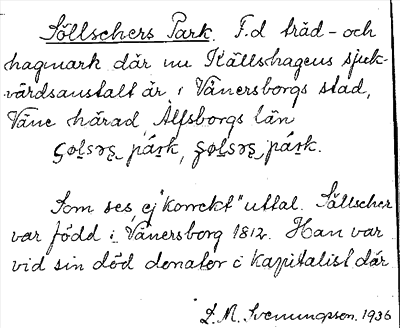 Söllschers Park. F.d träd- och
hagmark där nu Källshagens sjuk-
vårdsanstalt är i Vänersborgs stad,
Väne härad, Älfsborgs län
park, park.
Som ses, ej "korrekt" uttal. Söllscher
var född i Vänersborg 1812. Han var
vid sin död donator o kapitalist där
D. M. Svenungsson. 1936